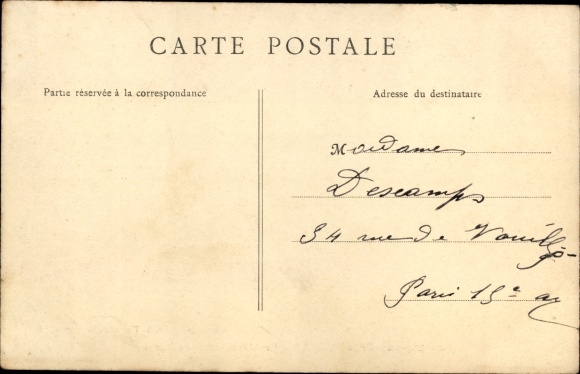 CARTE POSTALE
Partie réservée à la correspondance
Adresse du destinataire
Madame
Descamps
34 rue de Vouillé
Paris 15e ar